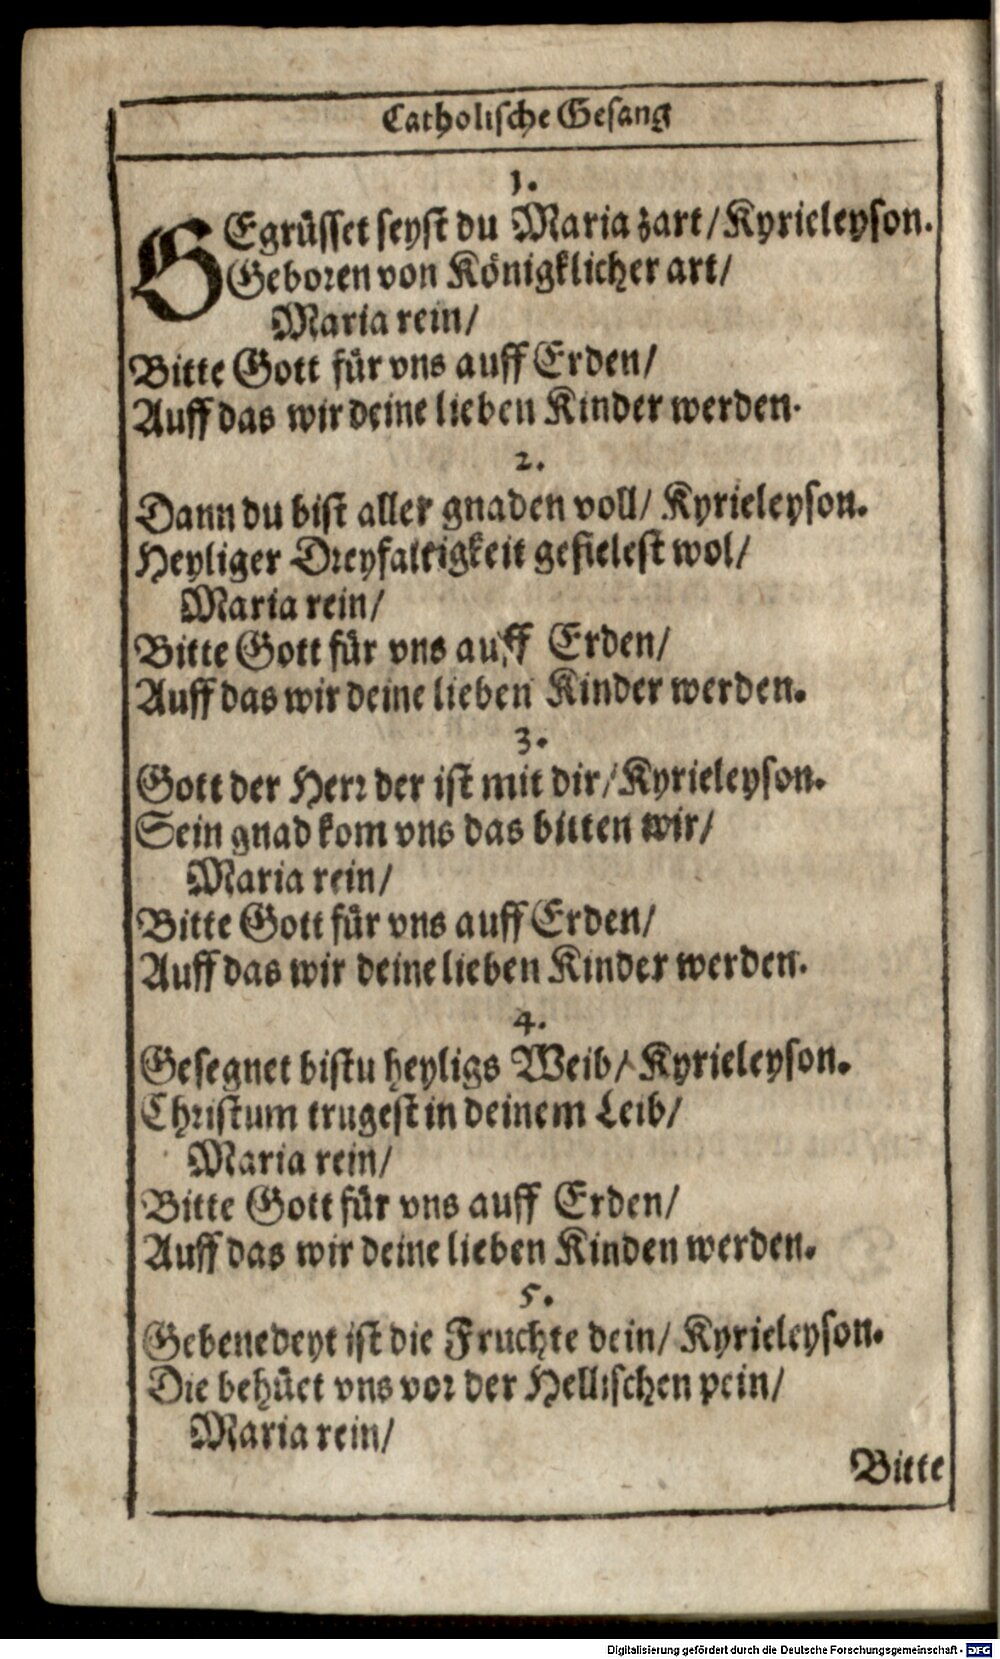 Catholische Gesang
1.
GEgrüsset seyst du Maria zart/ Kyrieleyson.
Geboren von Königklicher art/
Maria rein/
Bitte Gott für vns auff Erden/
Auff das wir deine lieben Kinder werden.
2.
Dann du bist aller gnaden voll/ Kyrieleyson.
Heyliger Dreyfaltigkeit gefielest wol/
Maria rein/
Bitte Gott für vns auff Erden/
Auff das wir deine lieben Kinder werden.
3.
Gott der Herr der ist mit dir/ Kyrieleyson.
Sein gnad kom vns das bitten wir/
Maria rein/
Bitte Gott für vns auff Erden/
Auff das wir deine lieben Kinder werden.
4.
Gesegnet bistu heyligs Weib/ Kyrieleyson.
Christum trugest in deinem Leib/
Maria rein/
Bitte Gott für vns auff Erden/
Auff das wir deine lieben Kinden werden.
5.
Gebenedeyt ist die Fruchte dein/ Kyrieleyson.
Die behüet vns vor der Hellischen pein/
Maria rein/
Bitte
Digitalisierung gefördert durch die Deutsche Forschungsgemeinschaft - DFG